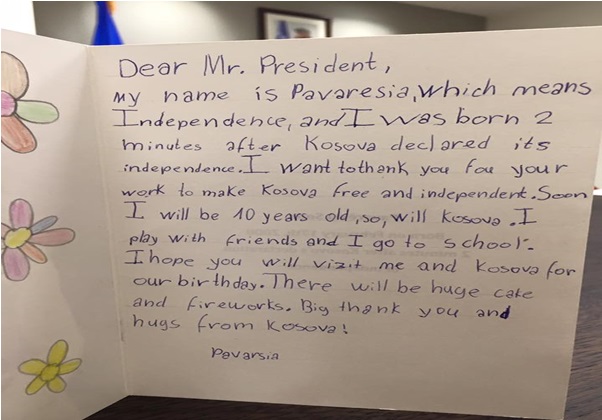 Dear Mr. President,
My name is Pavaresia, which means
Independence, and I was born 2
minutes after Kosova declared its
independence. I want to thank you fou your
work to make Kosova free and independent. Soon
I will be 10 years old, so, will Kosova. I
play with friends and I go to school.
I hope you will vizit me and Kosova for
our birthday. There will be huge cake
and fireworks. Big thank you and
hugs from Kosova!
Pavarsia